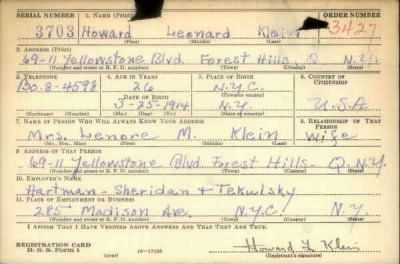 SERIAL NUMBER 1. NAME (Print) ORDER NUMBER
3703 Howard Leonard Klein 3427
(First) (Middle) (Last)
2. ADDRESS (Print)
69-11 Yellowstone Blvd. Forest Hills Q N.Y.
(Number and street or R. F. D. number) (Town) (County) (State)
3. TELEPHONE 4. AGE IN YEARS 5. PLACE OF BIRTH 6. COUNTRY OF CITIZENSHIP
BO.8-4598 26 N.Y.C.
DATE OF BIRTH (Town or county)
3-25-1914 N.Y. U.S.A.
(Exchange) (Number) (Mo.) (Day) (Yr.) (State or country)
7. NAME OF PERSON WHO WILL ALWAYS KNOW YOUR ADDRESS 8. RELATIONSHIP OF THAT PERSON
Mrs. Lenore M. Klein Wife
(Mr., Mrs., Miss) (First) (Middle) (Last)
9. ADDRESS OF THAT PERSON
69-11 Yellowstone Blvd. Forest Hills - Q - N.Y.
(Number and street or R. F. D. number) (Town) (County) (State)
10. EMPLOYER'S NAME
Hartman - Sheridan + Tekulsky
11. PLACE OF EMPLOYMENT OR BUSINESS
285 Madison Ave. N.Y.C. N.Y.
(Number and street or R. F. D. number) (Town) (County) (State)
I AFFIRM THAT I HAVE VERIFIED ABOVE ANSWERS AND THAT THEY ARE TRUE.
REGISTRATION CARD
D. S. S. Form 1 (over) Howard L Klein
(Registrant's signature)